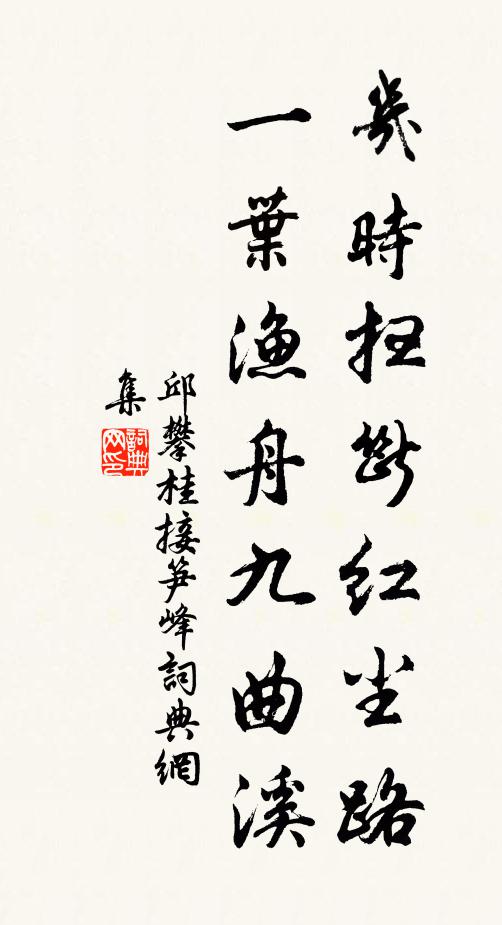 幾時扭斷紅尘路
一葉漁舟九曲溪
邱攀桂接笋峰詞典網
集
詞典
网印